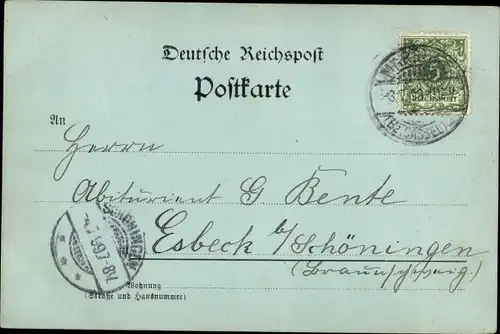 Deutsche Reichspost
Postkarte
An
Herrn
Abiturient G Bente
Esbeck b/Schöningen
(Braunschweig)
Wohnung
(Straße und Hausnummer)
5
REICHSPOST
(BZ. CASSEL)
SCHÖNINGEN
7-8V